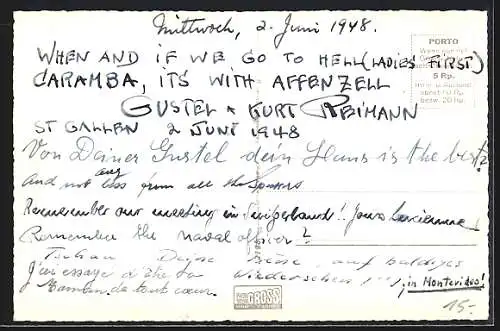 Mittwoch, 2. Juni 1948.
WHEN AND IF WE GO TO HELL (LADIES FIRST)
CARAMBA, ITS WITH AFFENZELL
GUSTEL + KURT REIMANN
ST GALLEN 2 JUNI 1948
Von Deiner Gustel dein Hans is the best?
And not less from all the
any
Rememember our meeting in Switzerland!! Yours Lucienne
Remember the naval officer?
Tschau Deine auf baldiges
J'essaye d'être ta Wiedersehen !!! in Montevideo!
Maman de tout cœur.
PORTO
5 Rp.
GROSS
15.-